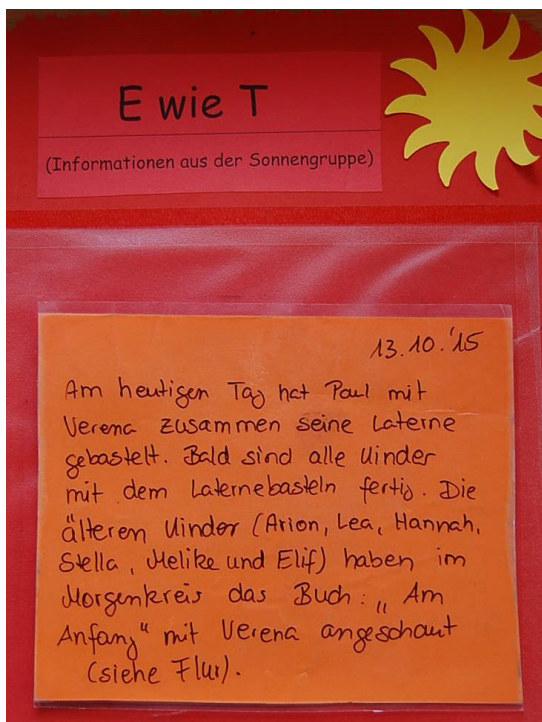 E wie T
(Informationen aus der Sonnengruppe)
13.10.'15
Am heutigen Tag hat Paul mit
Verena zusammen seine Laterne
gebastelt. Bald sind alle Kinder
mit dem Laternebasteln fertig. Die
älteren Kinder (Arion, Lea, Hannah,
Stella, Melike und Elif) haben im
Morgenkreis das Buch: „Am
Anfang" mit Verena angeschaut
(siehe Flur).